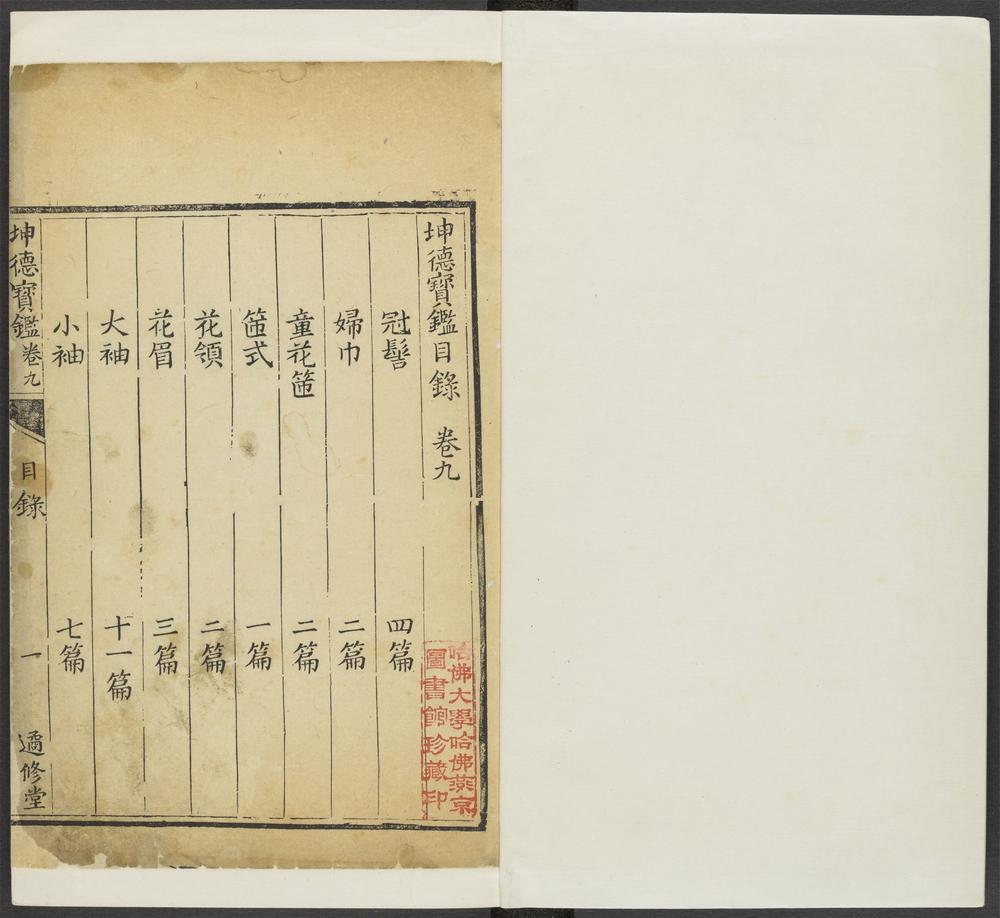 坤德寶鑑目錄 卷九
冠髻 四篇
婦巾 二篇
童花箍 二篇
箍式 一篇
花領 二篇
花眉 三篇
大袖 十一篇
小袖 七篇
坤德寶鑑 卷九 目錄 一 遹修堂
哈佛大學哈佛燕京
圖書館珍藏印